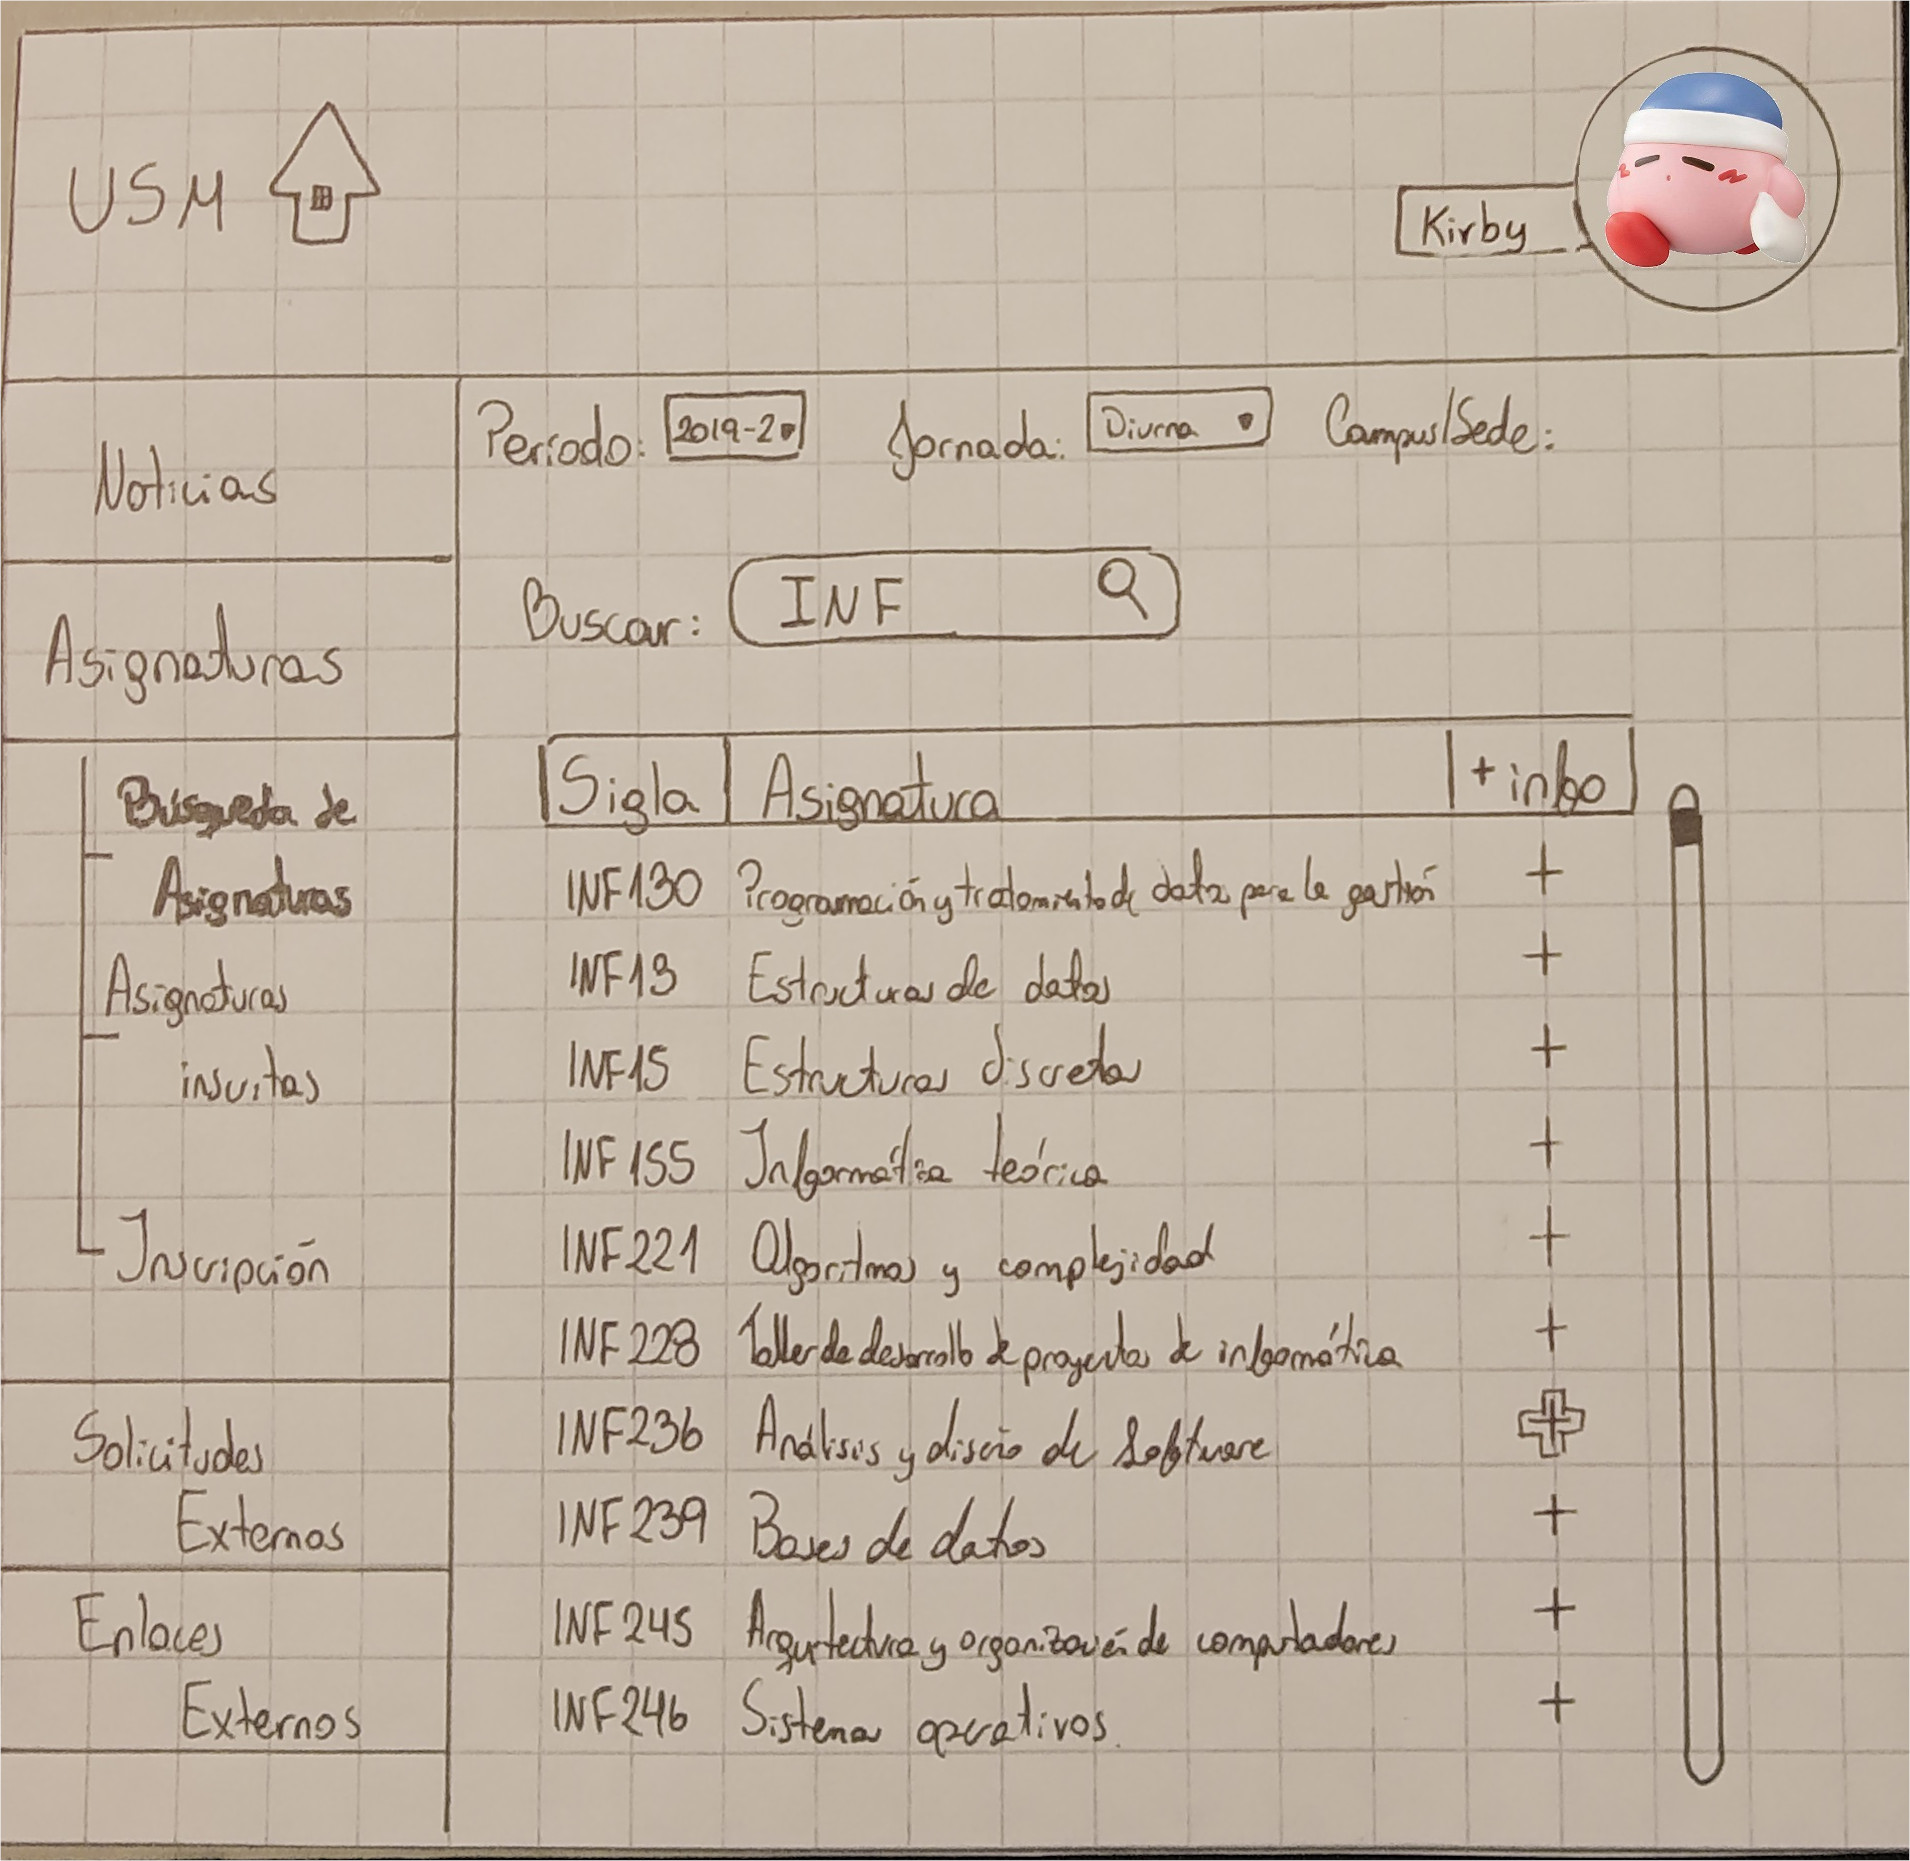 USM
Kirby
Noticias
Asignaturas
Búsqueda de
Asignaturas
Asignaturas
inscritas
Inscripción
Solicitudes
Externos
Enlaces
Externos
Periodo: 2019-2 Jornada: Diurna Campus/Sede:
Buscar: INF
Sigla Asignatura + info
INF130 Programación y tratamiento de data para la gestión +
INF13 Estructuras de datos +
INF15 Estructuras discretas +
INF155 Informática teórica +
INF221 Algoritmos y complejidad +
INF228 Taller de desarrollo de proyectos de informática +
INF236 Análisis y diseño de Software +
INF239 Bases de datos +
INF245 Arquitectura y organización de computadores +
INF246 Sistemas operativos. +